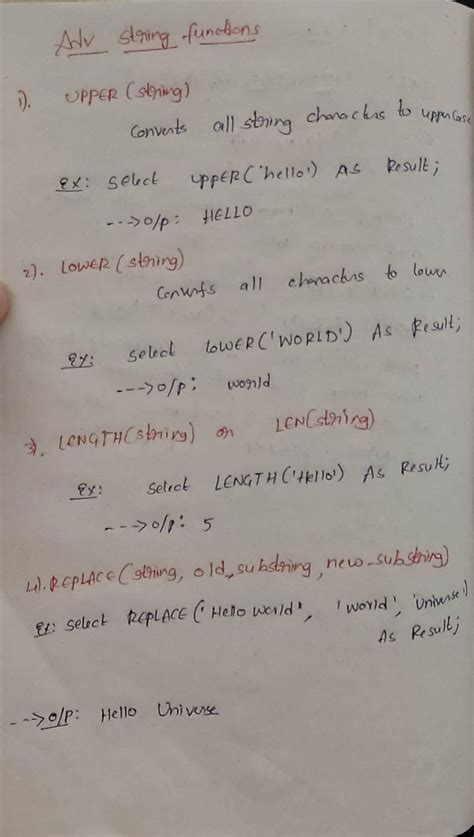 Adv string functions
1). UPPER (string)
Converts all string characters to uppercase
Ex: select UPPER('hello') As Result;
---> o/p: HELLO
2). LOWER (string)
Converts all characters to lower
Ex: select LOWER('WORLD') As Result;
---> o/p: world
3). LENGTH(string) or LEN(string)
Ex: select LENGTH('Hello') As Result;
---> o/p: 5
4). REPLACE(string, old_substring, new_substring)
Ex: select REPLACE('Hello world', 'world', 'Universe')
As Result;
---> o/p: Hello Universe